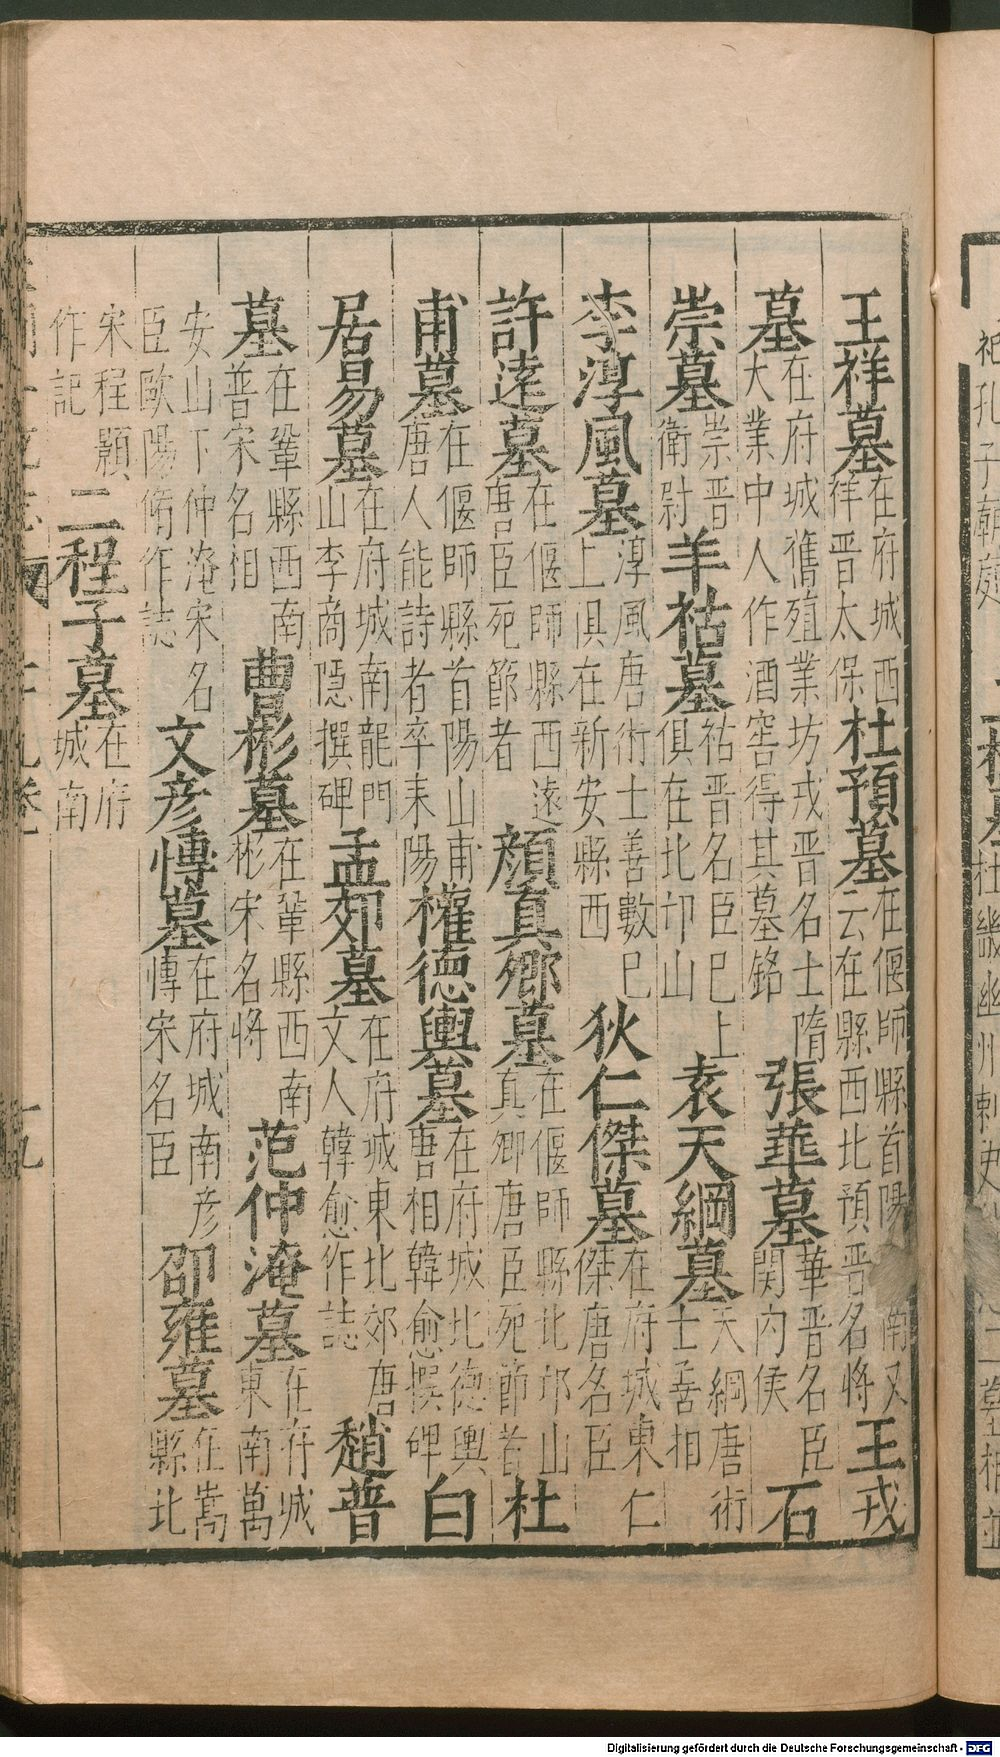 王祥墓在府城西祥晉太保杜預墓在偃師縣首陽南又云在縣西北預晉名將王戎
墓在府城舊殖業坊戎晉名士隋大業中人作酒窖得其墓銘張華墓華晉名臣関内侯石
崇墓崇晉衛尉羊祜墓祜晉名臣巳上俱在北邙山袁天綱墓天綱唐術士善相
李淳風墓淳風唐術士善數巳上俱在新安縣西狄仁傑墓在府城東仁傑唐名臣
許逺墓在偃師縣西逺唐臣死節者顔真卿墓在偃師縣北邙山真卿唐臣死節者杜
甫墓在偃師縣首陽山甫唐人能詩者卒耒陽權德輿墓在府城北德輿唐相韓愈撰碑白
居易墓在府城南龍門山李商隱撰碑孟郊墓在府城東北郊唐文人韓愈作誌趙普
墓在鞏縣西南普宋名相曹彬墓在鞏縣西南彬宋名將范仲淹墓在府城東南萬
安山下仲淹宋名臣歐陽脩作誌文彦博墓在府城南彦博宋名臣邵雍墓在嵩縣北
宋程顥作記二程子墓在府城南
Digitalisierung gefördert durch die Deutsche Forschungsgemeinschaft - DFG